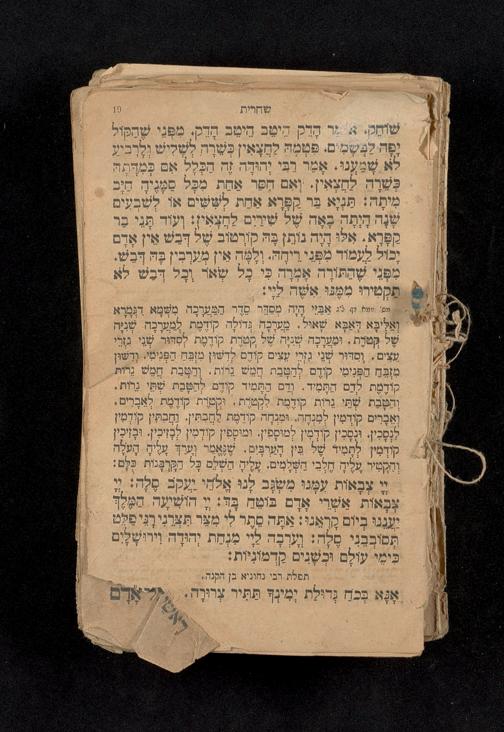 19 שחרית
שׁוֹחֵק. אוֹמֵר הָדֵק הֵיטֵב הֵיטֵב הָדֵק. מִפְּנֵי שֶׁהַקּוֹל
יָפֶה לַבְּשָׂמִים. פִּטְּמָהּ לַחֲצָאִין כְּשֵׁרָה לִשְׁלִישׁ וְלִרְבִיעַ
לֹא שָׁמַעְנוּ. אָמַר רַבִּי יְהוּדָה זֶה הַכְּלָל אִם כְּמִדָּתָהּ
כְּשֵׁרָה לַחֲצָאִין. וְאִם חִסַּר אַחַת מִכָּל סַמָּנֶיהָ חַיָּב
מִיתָה: תַּנְיָא בַּר קַפָּרָא אַחַת לְשִׁשִּׁים אוֹ לְשִׁבְעִים
שָׁנָה הָיְתָה בָאָה שֶׁל שִׁירַיִם לַחֲצָאִין: וְעוֹד תָּנֵי בַר
קַפָּרָא. אִלּוּ הָיָה נוֹתֵן בָּהּ קוֹרְטוֹב שֶׁל דְּבַשׁ אֵין אָדָם
יָכוֹל לַעֲמוֹד מִפְּנֵי רֵיחָהּ. וְלָמָּה אֵין מְעָרְבִין בָּהּ דְּבַשׁ.
מִפְּנֵי שֶׁהַתּוֹרָה אָמְרָה כִּי כָל שְׂאוֹר וְכָל דְּבַשׁ לֹא
תַקְטִירוּ מִמֶּנּוּ אִשֶּׁה לַיְיָ:
אַבַּיֵּי הֲוָה מְסַדֵּר סֵדֶר הַמַּעֲרָכָה מִשְּׁמָא דִגְמָרָא
וְאַלִּיבָּא דְּאַבָּא שָׁאוּל. מַעֲרָכָה גְדוֹלָה קוֹדֶמֶת לְמַעֲרָכָה שְׁנִיָּה
שֶׁל קְטֹרֶת. וּמַעֲרָכָה שְׁנִיָּה שֶׁל קְטֹרֶת קוֹדֶמֶת לְסִדּוּר שְׁנֵי גִזְרֵי
עֵצִים. וְסִדּוּר שְׁנֵי גִזְרֵי עֵצִים קוֹדֵם לְדִשּׁוּן מִזְבֵּחַ הַפְּנִימִי. וְדִשּׁוּן
מִזְבֵּחַ הַפְּנִימִי קוֹדֵם לַהֲטָבַת חָמֵשׁ נֵרוֹת. וַהֲטָבַת חָמֵשׁ נֵרוֹת
קוֹדֶמֶת לְדַם הַתָּמִיד. וְדַם הַתָּמִיד קוֹדֵם לַהֲטָבַת שְׁתֵּי נֵרוֹת.
וַהֲטָבַת שְׁתֵּי נֵרוֹת קוֹדֶמֶת לִקְטֹרֶת. וּקְטֹרֶת קוֹדֶמֶת לְאֵבָרִים.
וְאֵבָרִים קוֹדְמִין לְמִנְחָה. וּמִנְחָה קוֹדֶמֶת לַחֲבִתִּין. וַחֲבִתִּין קוֹדְמִין
לִנְסָכִין. וּנְסָכִין קוֹדְמִין לְמוּסָפִין. וּמוּסָפִין קוֹדְמִין לְבָזִיכִין. וּבָזִיכִין
קוֹדְמִין לְתָמִיד שֶׁל בֵּין הָעַרְבָּיִם. שֶׁנֶּאֱמַר וְעָרַךְ עָלֶיהָ הָעֹלָה
וְהִקְטִיר עָלֶיהָ חֶלְבֵי הַשְּׁלָמִים. עָלֶיהָ הַשְׁלֵם כָּל הַקָּרְבָּנוֹת כֻּלָּם:
יְיָ צְבָאוֹת עִמָּנוּ מִשְׂגָּב לָנוּ אֱלֹהֵי יַעֲקֹב סֶלָה: יְיָ
צְבָאוֹת אַשְׁרֵי אָדָם בּוֹטֵחַ בָּךְ: יְיָ הוֹשִׁיעָה הַמֶּלֶךְ
יַעֲנֵנוּ בְיוֹם קָרְאֵנוּ: אַתָּה סֵתֶר לִי מִצַּר תִּצְּרֵנִי רָנֵּי פַלֵּט
תְּסוֹבְבֵנִי סֶלָה: וְעָרְבָה לַיְיָ מִנְחַת יְהוּדָה וִירוּשָׁלָיִם
כִּימֵי עוֹלָם וּכְשָׁנִים קַדְמוֹנִיּוֹת:
תפלת רבי נחוניא בן הקנה.
אָנָּא בְּכֹחַ גְּדוּלַּת יְמִינְךָ תַּתִּיר צְרוּרָה.
אָדָם
ראשי